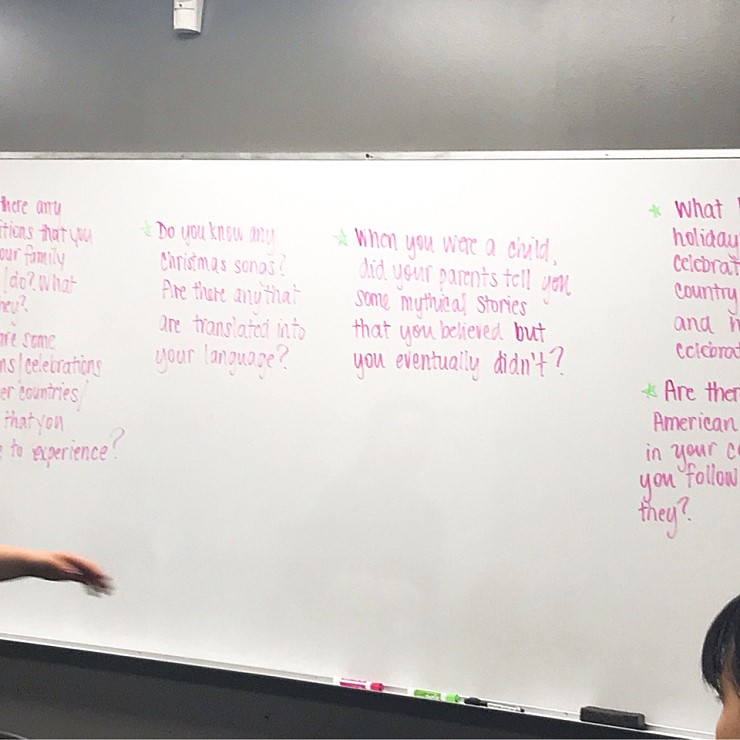 there any
itions that you
our family
/do? What
hey?
are some
ns/celebrations
er countries/
that you
to experience?
Do you know any
Christmas songs?
Are there any that
are translated into
your language?
When you were a child,
did your parents tell you
some mythical stories
that you believed but
you eventually didn't?
What
holiday
celebrat
country
and h
celebrat
Are ther
American
in your co
you follow
they?